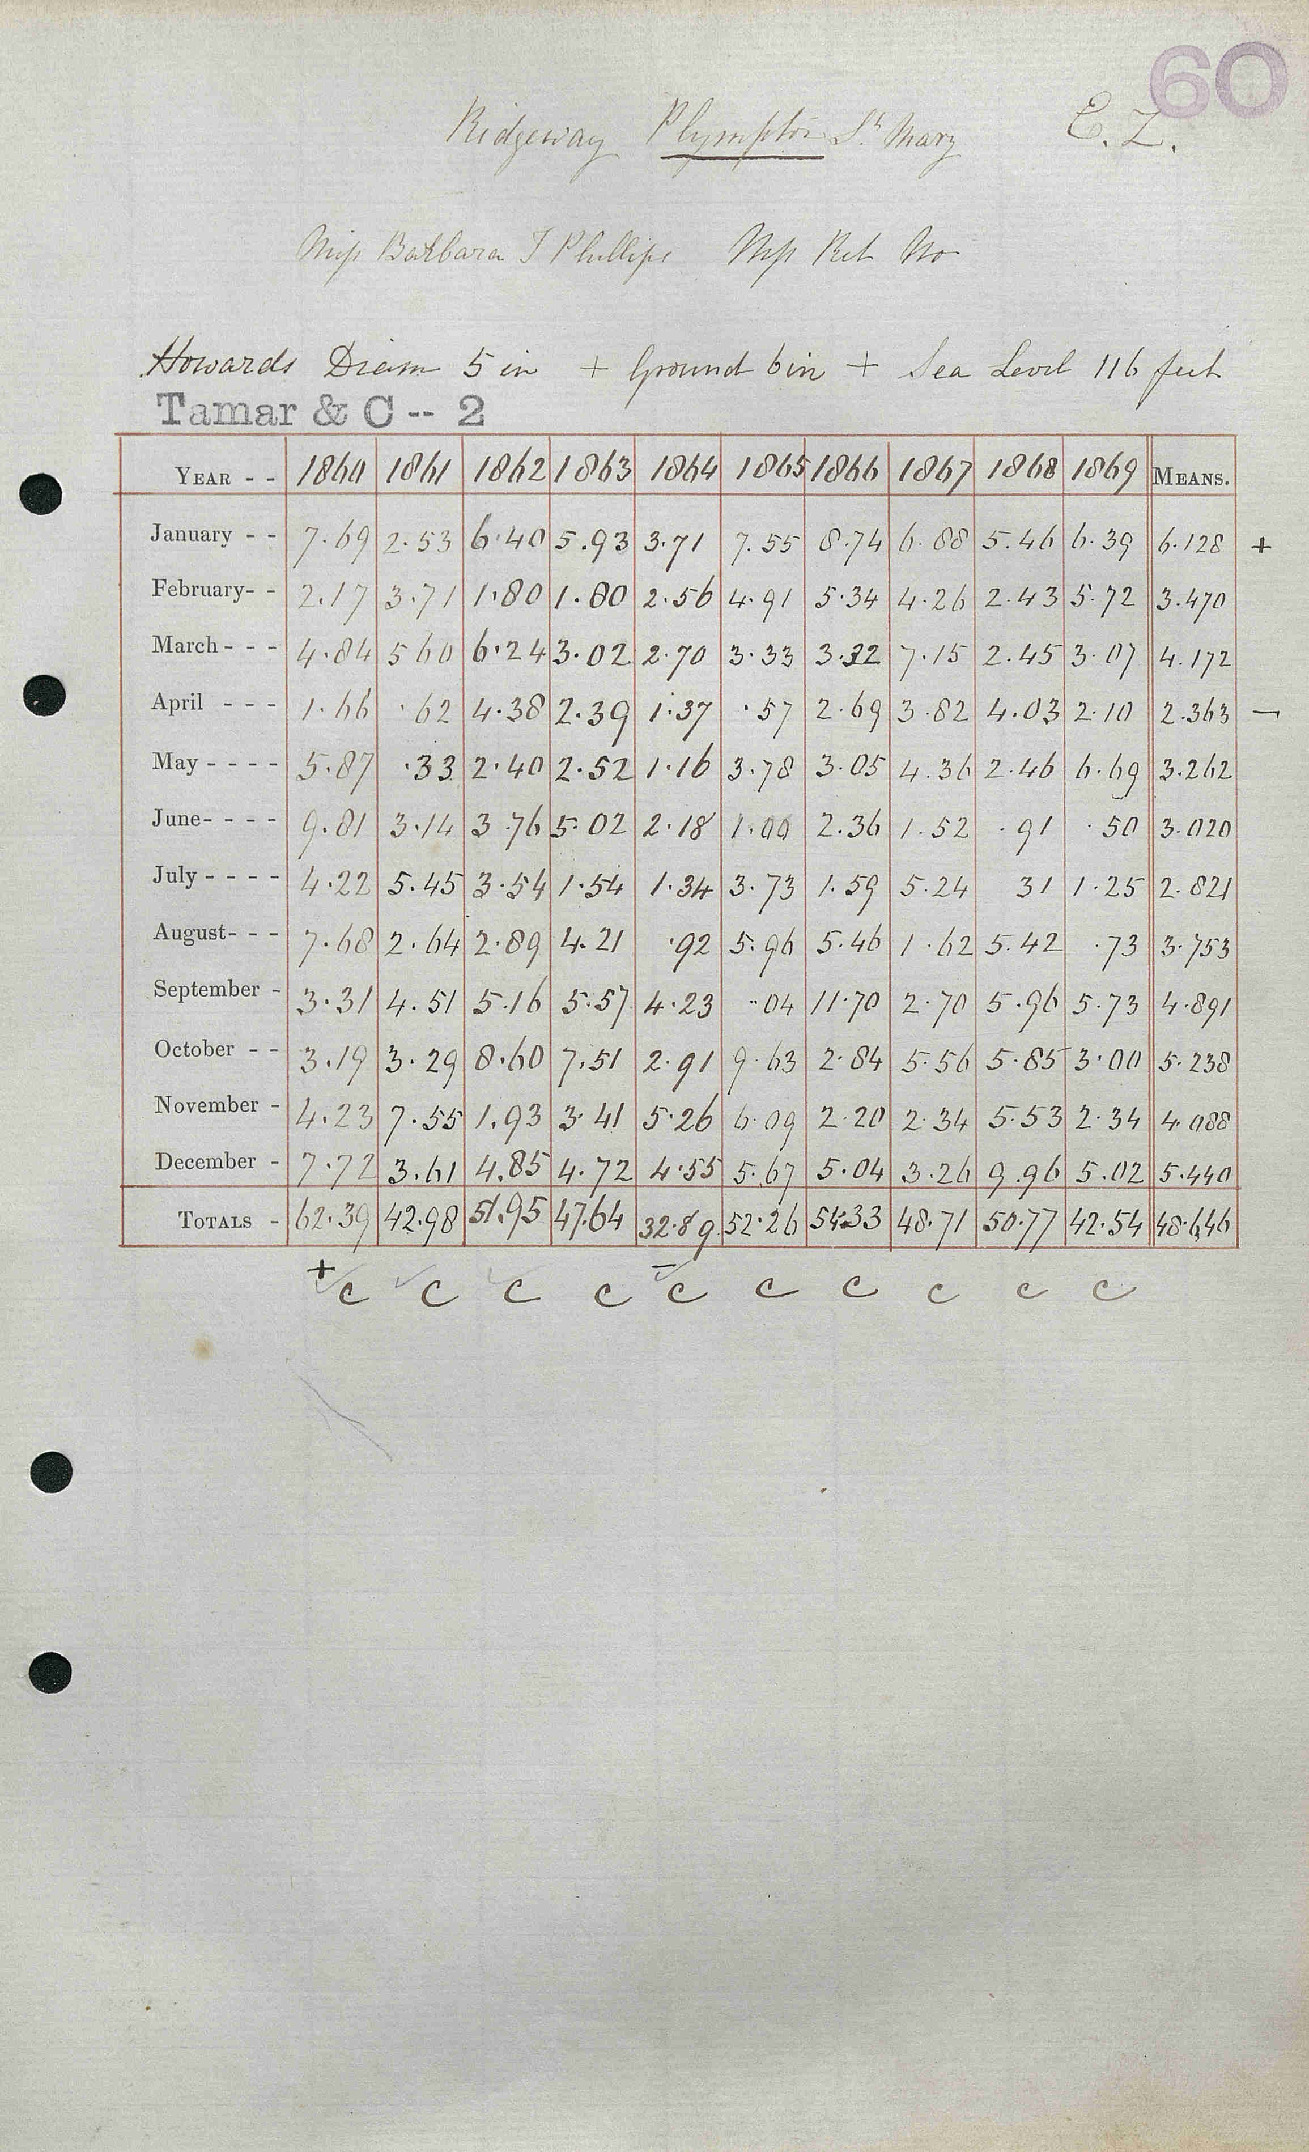 60
Ridgeway Plympton St Mary E. Z.
Miss Barbara J Phillips Mss Ret No
Howards Diam 5 in + Ground 6 in + Sea Level 116 feet
Tamar & C -- 2
YEAR - - 1860 1861 1862 1863 1864 1865 1866 1867 1868 1869 MEANS.
January - - 7.69 2.53 6.40 5.93 3.71 7.55 8.74 6.88 5.46 6.39 6.128 +
February- - 2.17 3.71 1.80 1.80 2.56 4.91 5.34 4.26 2.43 5.72 3.470
March - - - 4.84 5 60 6.24 3.02 2.70 3.33 3.32 7.15 2.45 3.07 4.172
April - - - 1.66 .62 4.38 2.39 1.37 .57 2.69 3.82 4.03 2.10 2.363 -
May - - - - 5.87 .33 2.40 2.52 1.16 3.78 3.05 4.36 2.46 6.69 3.262
June- - - - 9.81 3.14 3.76 5.02 2.18 1.00 2.36 1.52 .91 .50 3.020
July - - - - 4.22 5.45 3.54 1.54 1.34 3.73 1.59 5.24 31 1.25 2.821
August- - - 7.68 2.64 2.89 4.21 .92 5.96 5.46 1.62 5.42 .73 3.753
September - 3.31 4.51 5.16 5.57 4.23 .04 11.70 2.70 5.96 5.73 4.891
October - - 3.19 3.29 8.60 7.51 2.91 9.63 2.84 5.56 5.85 3.00 5.238
November - 4.23 7.55 1.93 3.41 5.26 6.09 2.20 2.34 5.53 2.34 4.088
December - 7.72 3.61 4.85 4.72 4.55 5.67 5.04 3.26 9.96 5.02 5.440
TOTALS - 62.39 42.98 51.95 47.64 32.89 52.26 54.33 48.71 50.77 42.54 48.646
+ c c c c - c c c c c c